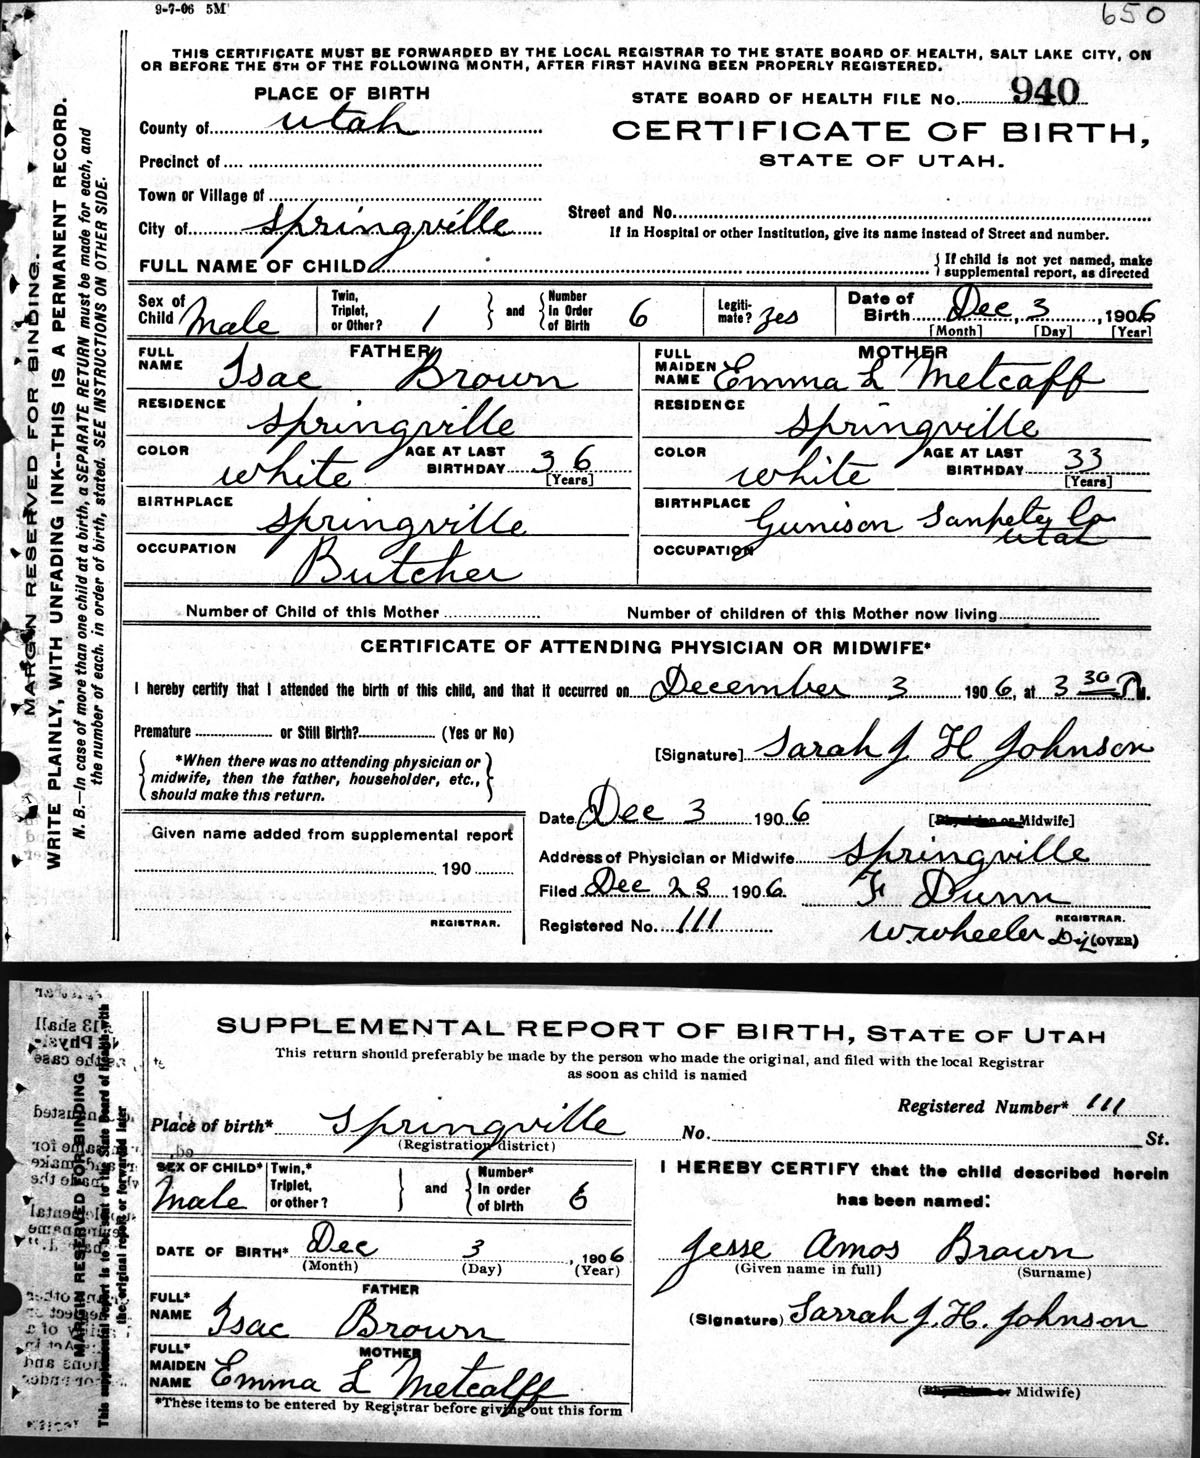 9-7-06 5M
650
THIS CERTIFICATE MUST BE FORWARDED BY THE LOCAL REGISTRAR TO THE STATE BOARD OF HEALTH, SALT LAKE CITY, ON
OR BEFORE THE 5TH OF THE FOLLOWING MONTH, AFTER FIRST HAVING BEEN PROPERLY REGISTERED.
PLACE OF BIRTH
STATE BOARD OF HEALTH FILE NO. 940
County of Utah
CERTIFICATE OF BIRTH,
STATE OF UTAH.
Precinct of
Town or Village of
Street and No.
City of Springville
If in Hospital or other Institution, give its name instead of Street and number.
FULL NAME OF CHILD
{ If child is not yet named, make
supplemental report, as directed
Sex of Child Male
Twin, Triplet, or Other? 1 } and { Number In Order of Birth 6
Legitimate? Yes
Date of Birth Dec, 3, 1906
[Month] [Day] [Year]
FATHER
FULL NAME Isac Brown
MOTHER
FULL MAIDEN NAME Emma L Metcaff
RESIDENCE Springville
RESIDENCE Springville
COLOR white AGE AT LAST BIRTHDAY 36 [Years]
COLOR white AGE AT LAST BIRTHDAY 33 [Years]
BIRTHPLACE Springville
BIRTHPLACE Gunison Sanpete Co Utah
OCCUPATION Butcher
OCCUPATION
Number of Child of this Mother
Number of children of this Mother now living
CERTIFICATE OF ATTENDING PHYSICIAN OR MIDWIFE*
I hereby certify that I attended the birth of this child, and that it occurred on December 3 1906, at 3 30 M.
Premature or Still Birth? (Yes or No)
[Signature] Sarah J H Johnson
{ *When there was no attending physician or
midwife, then the father, householder, etc.,
should make this return. }
Date Dec 3 1906
[Physician or Midwife]
Given name added from supplemental report
190
REGISTRAR.
Address of Physician or Midwife Springville
Filed Dec 28 1906 F Dunn
REGISTRAR.
Registered No. 111
W. Wheeler
(OVER)
MARGIN RESERVED FOR BINDING.
WRITE PLAINLY, WITH UNFADING INK--THIS IS A PERMANENT RECORD.
N. B.—In case of more than one child at a birth, a SEPARATE RETURN must be made for each, and
the number of each. in order of birth, stated. SEE INSTRUCTIONS ON OTHER SIDE.
SUPPLEMENTAL REPORT OF BIRTH, STATE OF UTAH
This return should preferably be made by the person who made the original, and filed with the local Registrar
as soon as child is named
Registered Number* 111
Place of birth* Springville No. St.
(Registration district)
SEX OF CHILD* Male
Twin,* Triplet, or other? } and { Number* In order of birth 6
I HEREBY CERTIFY that the child described herein
has been named:
DATE OF BIRTH* Dec 3, 1906
(Month) (Day) (Year)
Jesse Amos Brown
(Given name in full) (Surname)
FATHER
FULL* NAME Isac Brown
(Signature) Sarrah J. H. Johnson
MOTHER
FULL* MAIDEN NAME Emma L Metcalff
(Physician or Midwife)
*These items to be entered by Registrar before giving out this form
MARGIN RESERVED FOR BINDING
This supplemental report is to be sent to the State Board of Health with
the original report or forwarded later